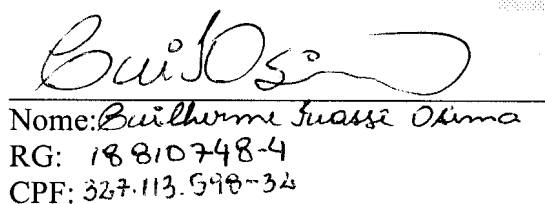 Nome: Guilherme Iuassi Osima
RG: 18810748-4
CPF: 327.113.598-32